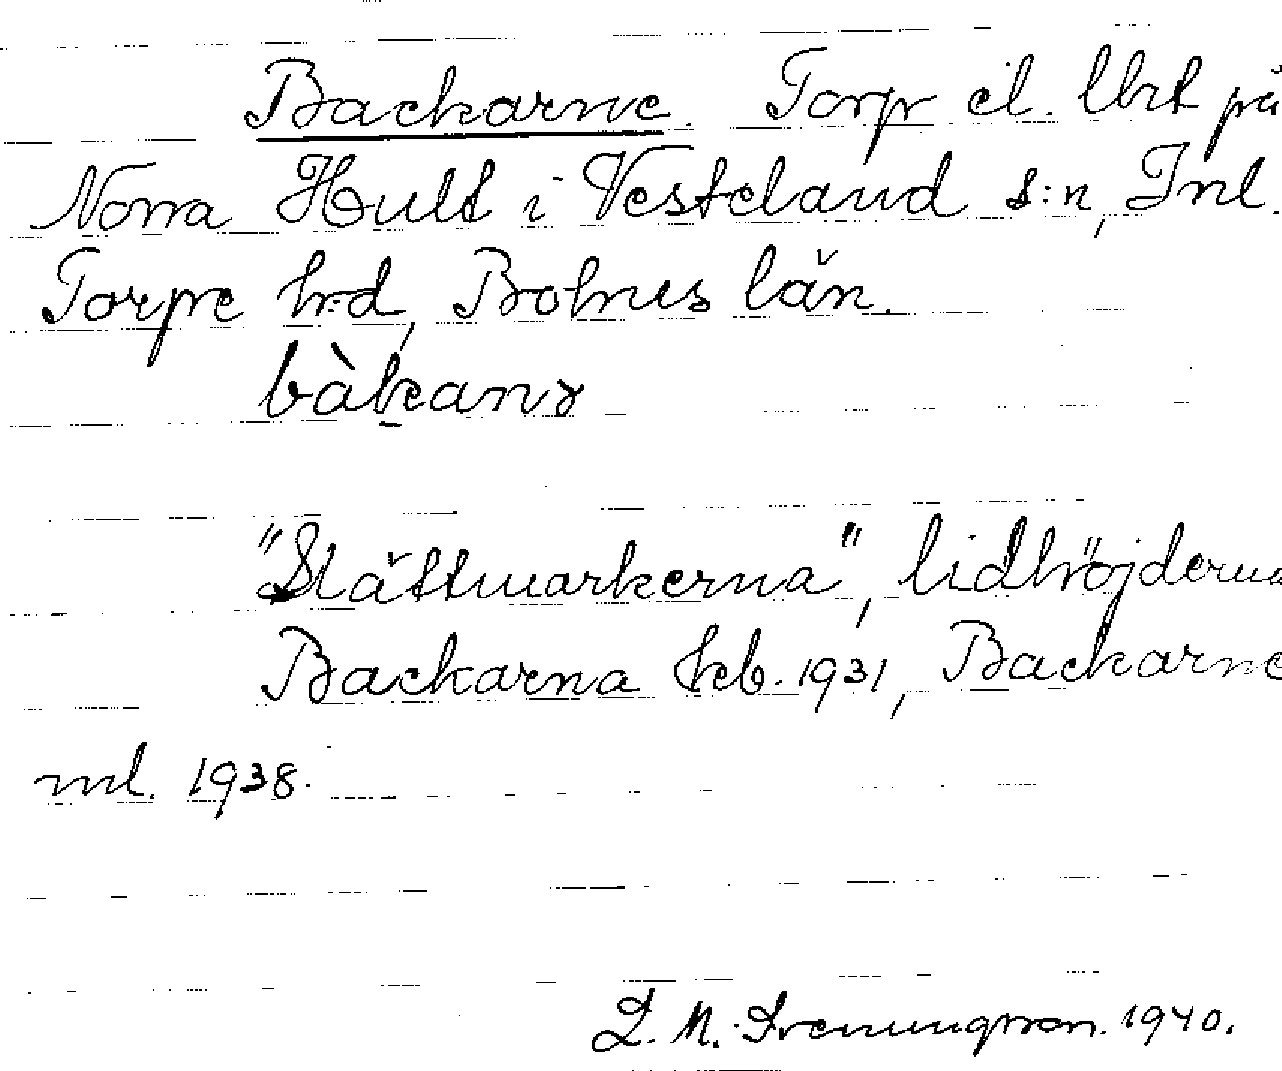 Backarne. Torp el. lht på
Norra Hult i Vesteland s:n, Inl.
Torpe hrd, Bohus län.
bàkanɤ
"Slåttmarkerna", lidhöjderna
Backarna kb. 1931, Backarne
ml. 1938.
L. M. Svenungsson. 1940.